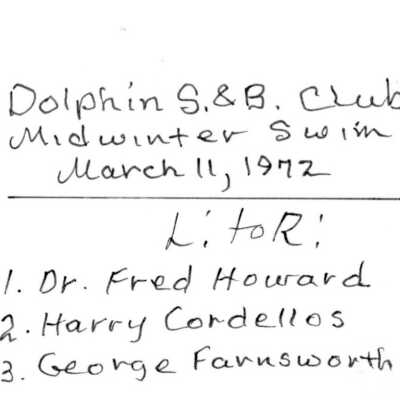 Dolphin S.&B. Club
Midwinter Swim
March 11, 1972
L. to R:
1. Dr. Fred Howard
2. Harry Cordellos
3. George Farnsworth